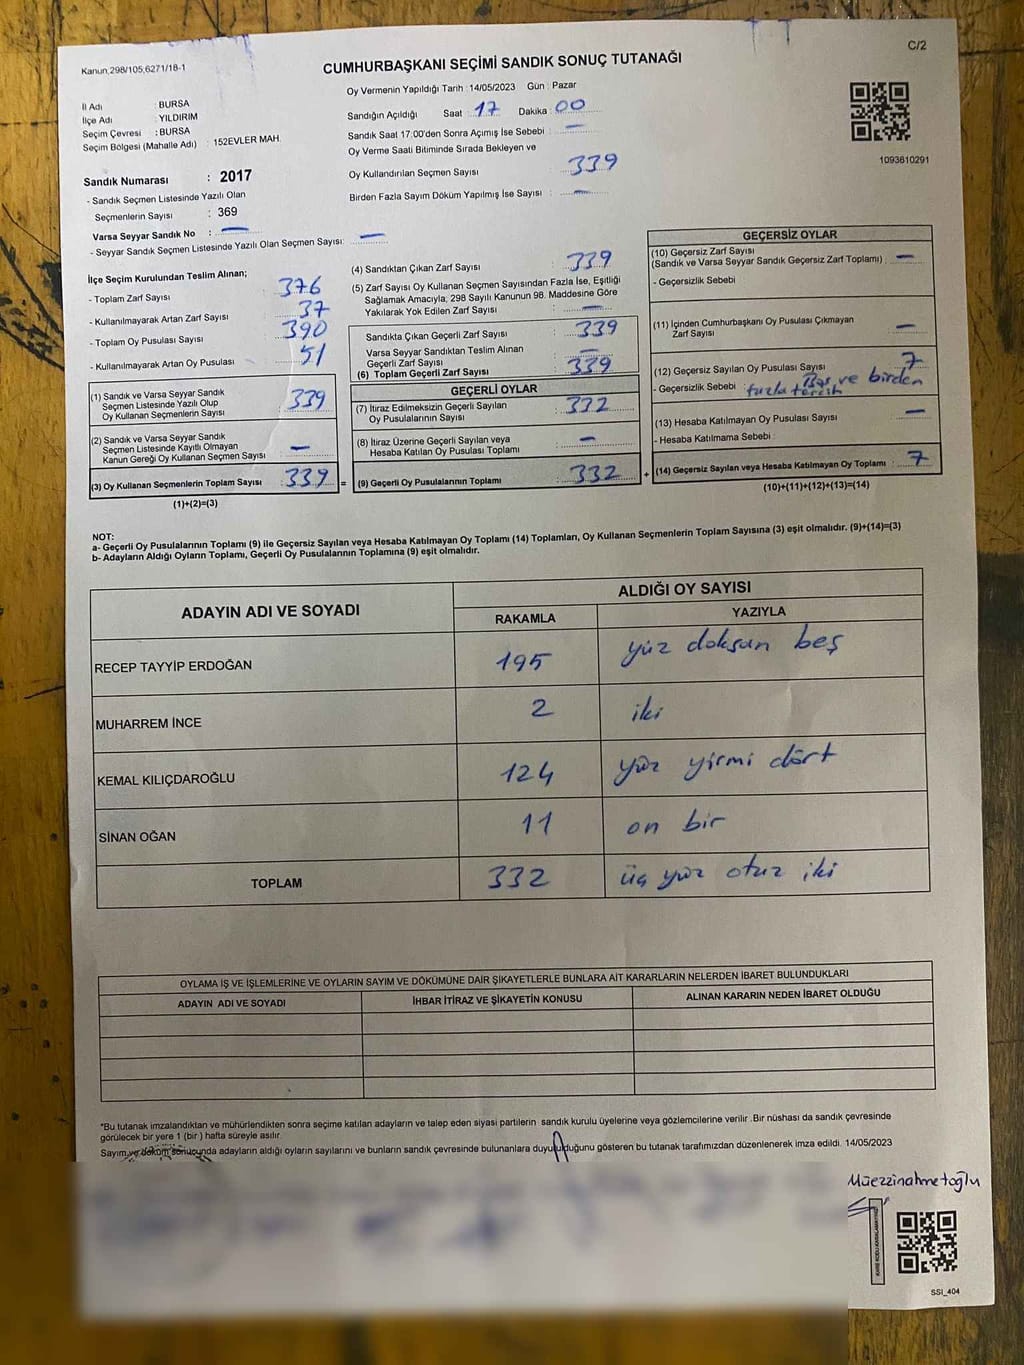 Kanun,298/105,6271/18-1
C/2
CUMHURBAŞKANI SEÇİMİ SANDIK SONUÇ TUTANAĞI
İl Adı : BURSA
İlçe Adı : YILDIRIM
Seçim Çevresi : BURSA
Seçim Bölgesi (Mahalle Adı) : 152EVLER MAH.
Sandık Numarası : 2017
- Sandık Seçmen Listesinde Yazılı Olan
Seçmenlerin Sayısı : 369
Varsa Seyyar Sandık No : —
- Seyyar Sandık Seçmen Listesinde Yazılı Olan Seçmen Sayısı: —
Oy Vermenin Yapıldığı Tarih : 14/05/2023 Gün : Pazar
Sandığın Açıldığı Saat 17 Dakika : 00
Sandık Saat 17:00'den Sonra Açımış İse Sebebi : —
Oy Verme Saati Bitiminde Sırada Bekleyen ve
Oy Kullandırılan Seçmen Sayısı : 339
Birden Fazla Sayım Döküm Yapılmış İse Sayısı : —
1093610291
İlçe Seçim Kurulundan Teslim Alınan;
- Toplam Zarf Sayısı 376
- Kullanılmayarak Artan Zarf Sayısı 37
- Toplam Oy Pusulası Sayısı 390
- Kullanılmayarak Artan Oy Pusulası 51
(1) Sandık ve Varsa Seyyar Sandık
Seçmen Listesinde Yazılı Olup
Oy Kullanan Seçmenlerin Sayısı : 339
(2) Sandık ve Varsa Seyyar Sandık
Seçmen Listesinde Kayıtlı Olmayan
Kanun Gereği Oy Kullanan Seçmen Sayısı : —
(3) Oy Kullanan Seçmenlerin Toplam Sayısı : 339 =
(1)+(2)=(3)
(4) Sandıktan Çıkan Zarf Sayısı : 339
(5) Zarf Sayısı Oy Kullanan Seçmen Sayısından Fazla İse, Eşitliği
Sağlamak Amacıyla, 298 Sayılı Kanunun 98. Maddesine Göre
Yakılarak Yok Edilen Zarf Sayısı : —
Sandıkta Çıkan Geçerli Zarf Sayısı : 339
Varsa Seyyar Sandıktan Teslim Alınan
Geçerli Zarf Sayısı : —
(6) Toplam Geçerli Zarf Sayısı : 339
GEÇERLİ OYLAR
(7) İtiraz Edilmeksizin Geçerli Sayılan
Oy Pusulalarının Sayısı : 332
(8) İtiraz Üzerine Geçerli Sayılan veya
Hesaba Katılan Oy Pusulası Toplamı : —
(9) Geçerli Oy Pusulalarının Toplamı : 332 +
GEÇERSİZ OYLAR
(10) Geçersiz Zarf Sayısı
(Sandık ve Varsa Seyyar Sandık Geçersiz Zarf Toplamı) : —
- Geçersizlik Sebebi
(11) İçinden Cumhurbaşkanı Oy Pusulası Çıkmayan
Zarf Sayısı : —
(12) Geçersiz Sayılan Oy Pusulası Sayısı : 7
- Geçersizlik Sebebi : Boş ve birden
fazla tercih
(13) Hesaba Katılmayan Oy Pusulası Sayısı : —
- Hesaba Katılmama Sebebi :
(14) Geçersiz Sayılan veya Hesaba Katılmayan Oy Toplamı : 7
(10)+(11)+(12)+(13)=(14)
NOT:
a- Geçerli Oy Pusulalarının Toplamı (9) ile Geçersiz Sayılan veya Hesaba Katılmayan Oy Toplamı (14) Toplamları, Oy Kullanan Seçmenlerin Toplam Sayısına (3) eşit olmalıdır. (9)+(14)=(3)
b- Adayların Aldığı Oyların Toplamı, Geçerli Oy Pusulalarının Toplamına (9) eşit olmalıdır.
ADAYIN ADI VE SOYADI
ALDIĞI OY SAYISI
RAKAMLA YAZIYLA
RECEP TAYYİP ERDOĞAN 195 yüz doksan beş
MUHARREM İNCE 2 iki
KEMAL KILIÇDAROĞLU 124 yüz yirmi dört
SİNAN OĞAN 11 on bir
TOPLAM 332 üç yüz otuz iki
OYLAMA İŞ VE İŞLEMLERİNE VE OYLARIN SAYIM VE DÖKÜMÜNE DAİR ŞİKAYETLERLE BUNLARA AİT KARARLARIN NELERDEN İBARET BULUNDUKLARI
ADAYIN ADI VE SOYADI İHBAR İTİRAZ VE ŞİKAYETİN KONUSU ALINAN KARARIN NEDEN İBARET OLDUĞU
*Bu tutanak imzalandıktan ve mühürlendikten sonra seçime katılan adayların ve talep eden siyasi partilerin sandık kurulu üyelerine veya gözlemcilerine verilir .Bir nüshası da sandık çevresinde
görülecek bir yere 1 (bir ) hafta süreyle asılır
Sayım ve döküm sonucunda adayların aldığı oyların sayılarını ve bunların sandık çevresinde bulunanlara duyulduğunu gösteren bu tutanak tarafımızdan düzenlenerek imza edildi. 14/05/2023
Müezzinahmetoğlu
SSI_404